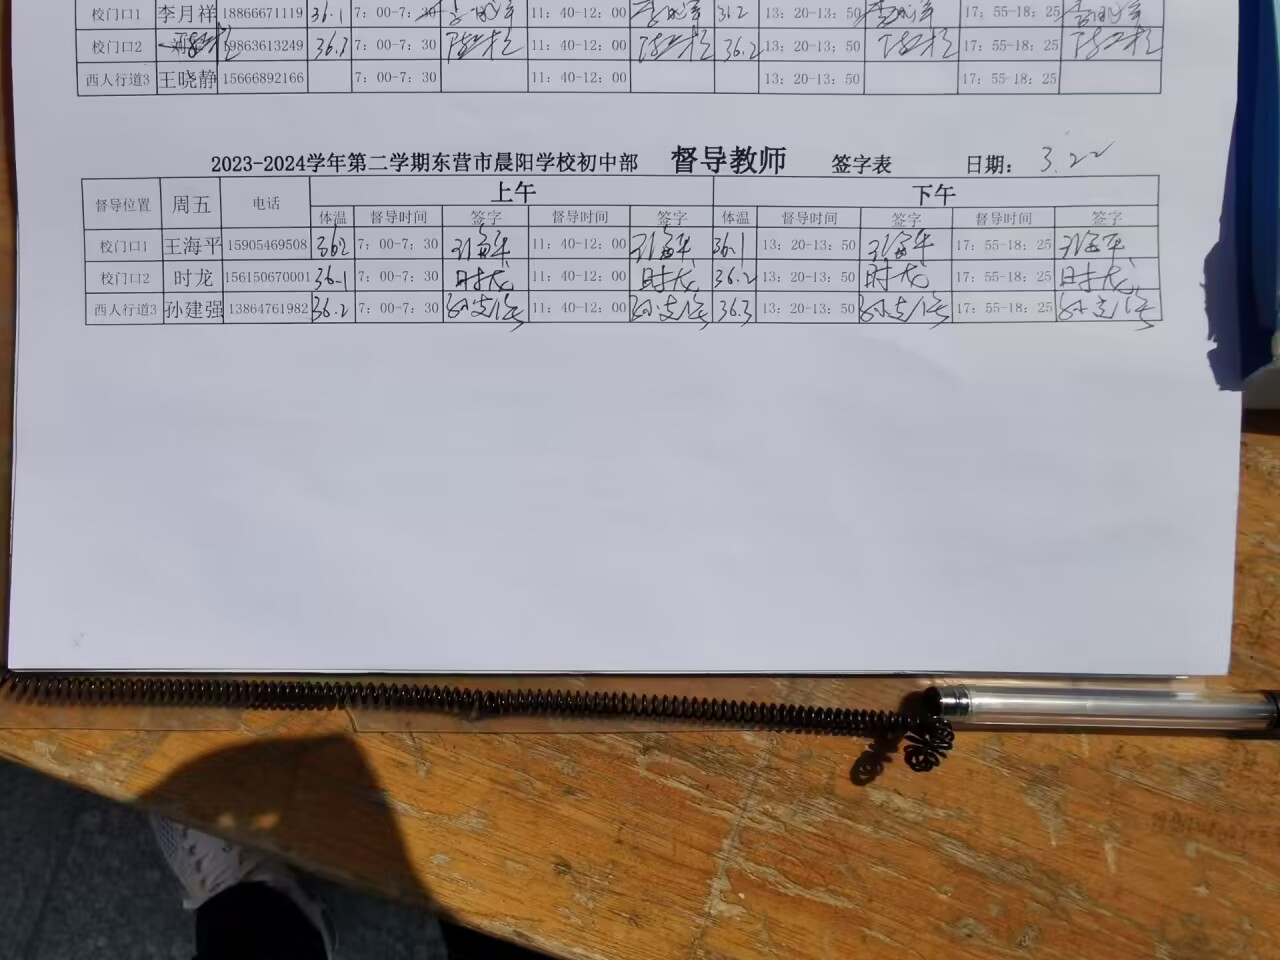 校门口1 李月祥 18866671119 36.1 7：00-7：30 11：40-12：00 36.2 13：20-13：50 17：55-18：25
校门口2 19863613249 36.3 7：00-7：30 11：40-12：00 36.2 13：20-13：50 17：55-18：25
西人行道3 王晓静 15666892166 7：00-7：30 11：40-12：00 13：20-13：50 17：55-18：25
2023-2024学年第二学期东营市晨阳学校初中部 督导教师 签字表 日期： 3.22
督导位置 周五 电话 上午 下午
体温 督导时间 签字 督导时间 签字 体温 督导时间 签字 督导时间 签字
校门口1 王海平 15905469508 362 7：00-7：30 王海平 11：40-12：00 王海平 36.1 13：20-13：50 王海平 17：55-18：25 王海平
校门口2 时龙 156150670001 36.1 7：00-7：30 时龙 11：40-12：00 时龙 36.2 13：20-13：50 时龙 17：55-18：25 时龙
西人行道3 孙建强 13864761982 36.2 7：00-7：30 孙建强 11：40-12：00 孙建强 36.3 13：20-13：50 孙建强 17：55-18：25 孙建强